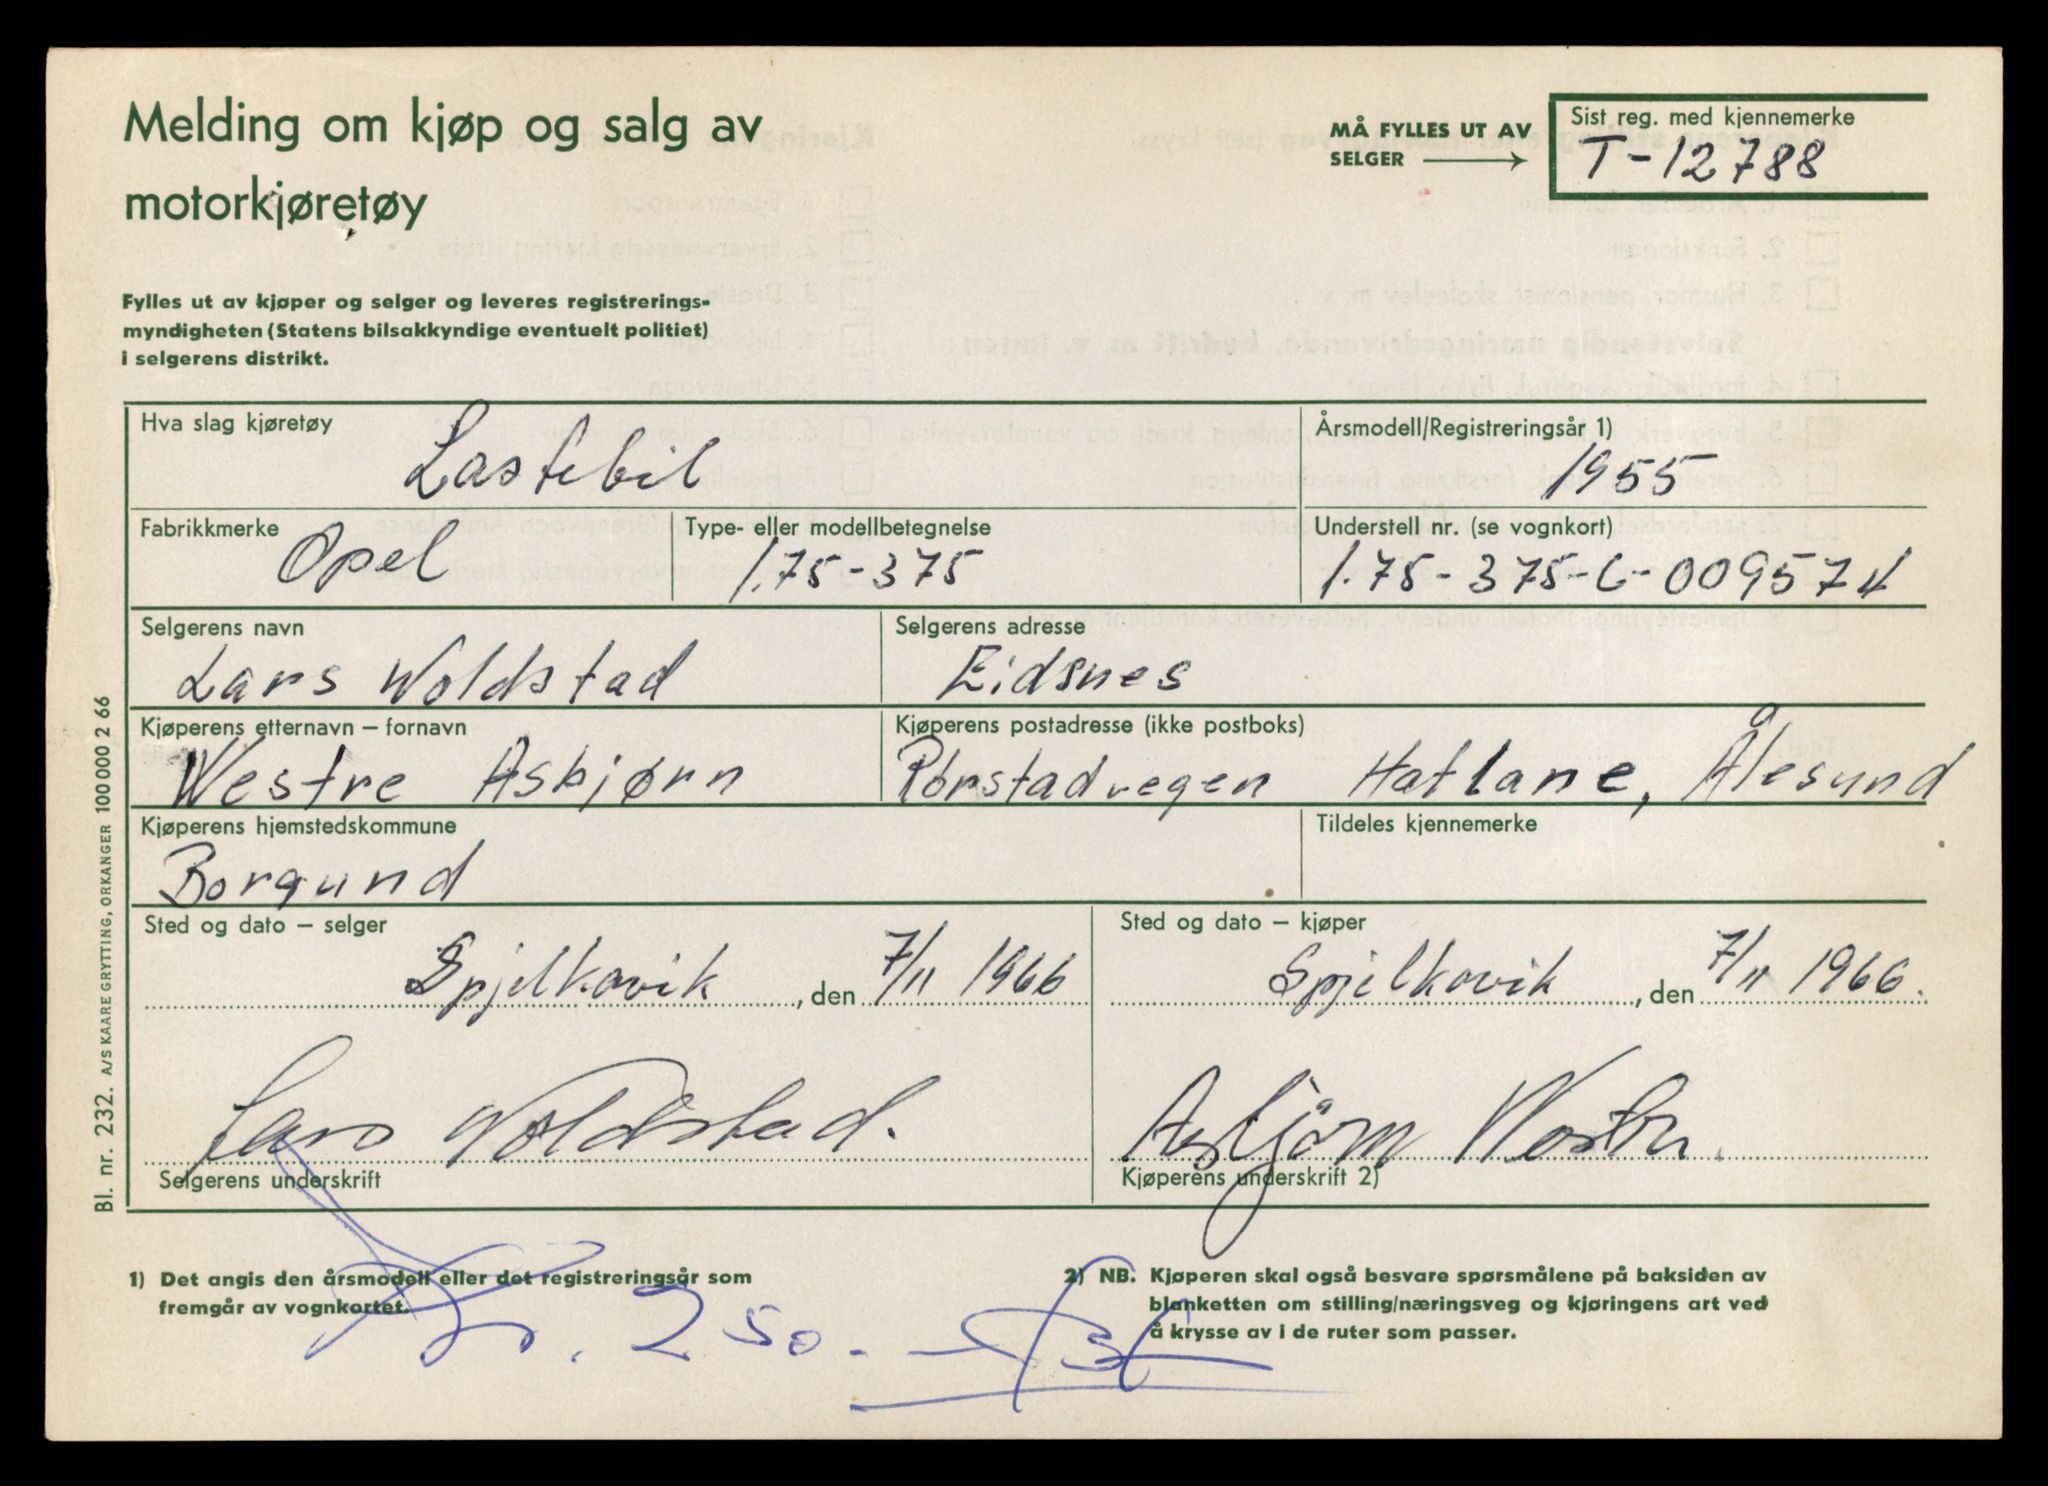 Melding om kjøp og salg av
motorkjøretøy
MÅ FYLLES UT AV
SELGER
Sist reg. med kjennemerke
T-12788
Fylles ut av kjøper og selger og leveres registrerings-
myndigheten (Statens bilsakkyndige eventuelt politiet)
i selgerens distrikt.
Hva slag kjøretøy
Lastebil
Årsmodell/Registreringsår 1)
1955
Fabrikkmerke
Opel
Type- eller modellbetegnelse
1.75-375
Understell nr. (se vognkort)
1.75-375-L-009574
Selgerens navn
Lars Woldstad
Selgerens adresse
Eidsnes
Kjøperens etternavn – fornavn
Westre Asbjørn
Kjøperens postadresse (ikke postboks)
Rørstadvegen Hatlane, Ålesund
Kjøperens hjemstedskommune
Borgund
Tildeles kjennemerke
Sted og dato – selger
Spjelkavik, den 7/11 1966
Sted og dato – kjøper
Spjelkavik, den 7/11 1966.
Lars Woldstad.
Selgerens underskrift
Asbjørn Westre.
Kjøperens underskrift 2)
1) Det angis den årsmodell eller det registreringsår som
fremgår av vognkortet.
2) NB. Kjøperen skal også besvare spørsmålene på baksiden av
blanketten om stilling/næringsveg og kjøringens art ved
å krysse av i de ruter som passer.
250.-
Bl. nr. 232. A/S KAARE GRYTTING, ORKANGER 100 000 2 66